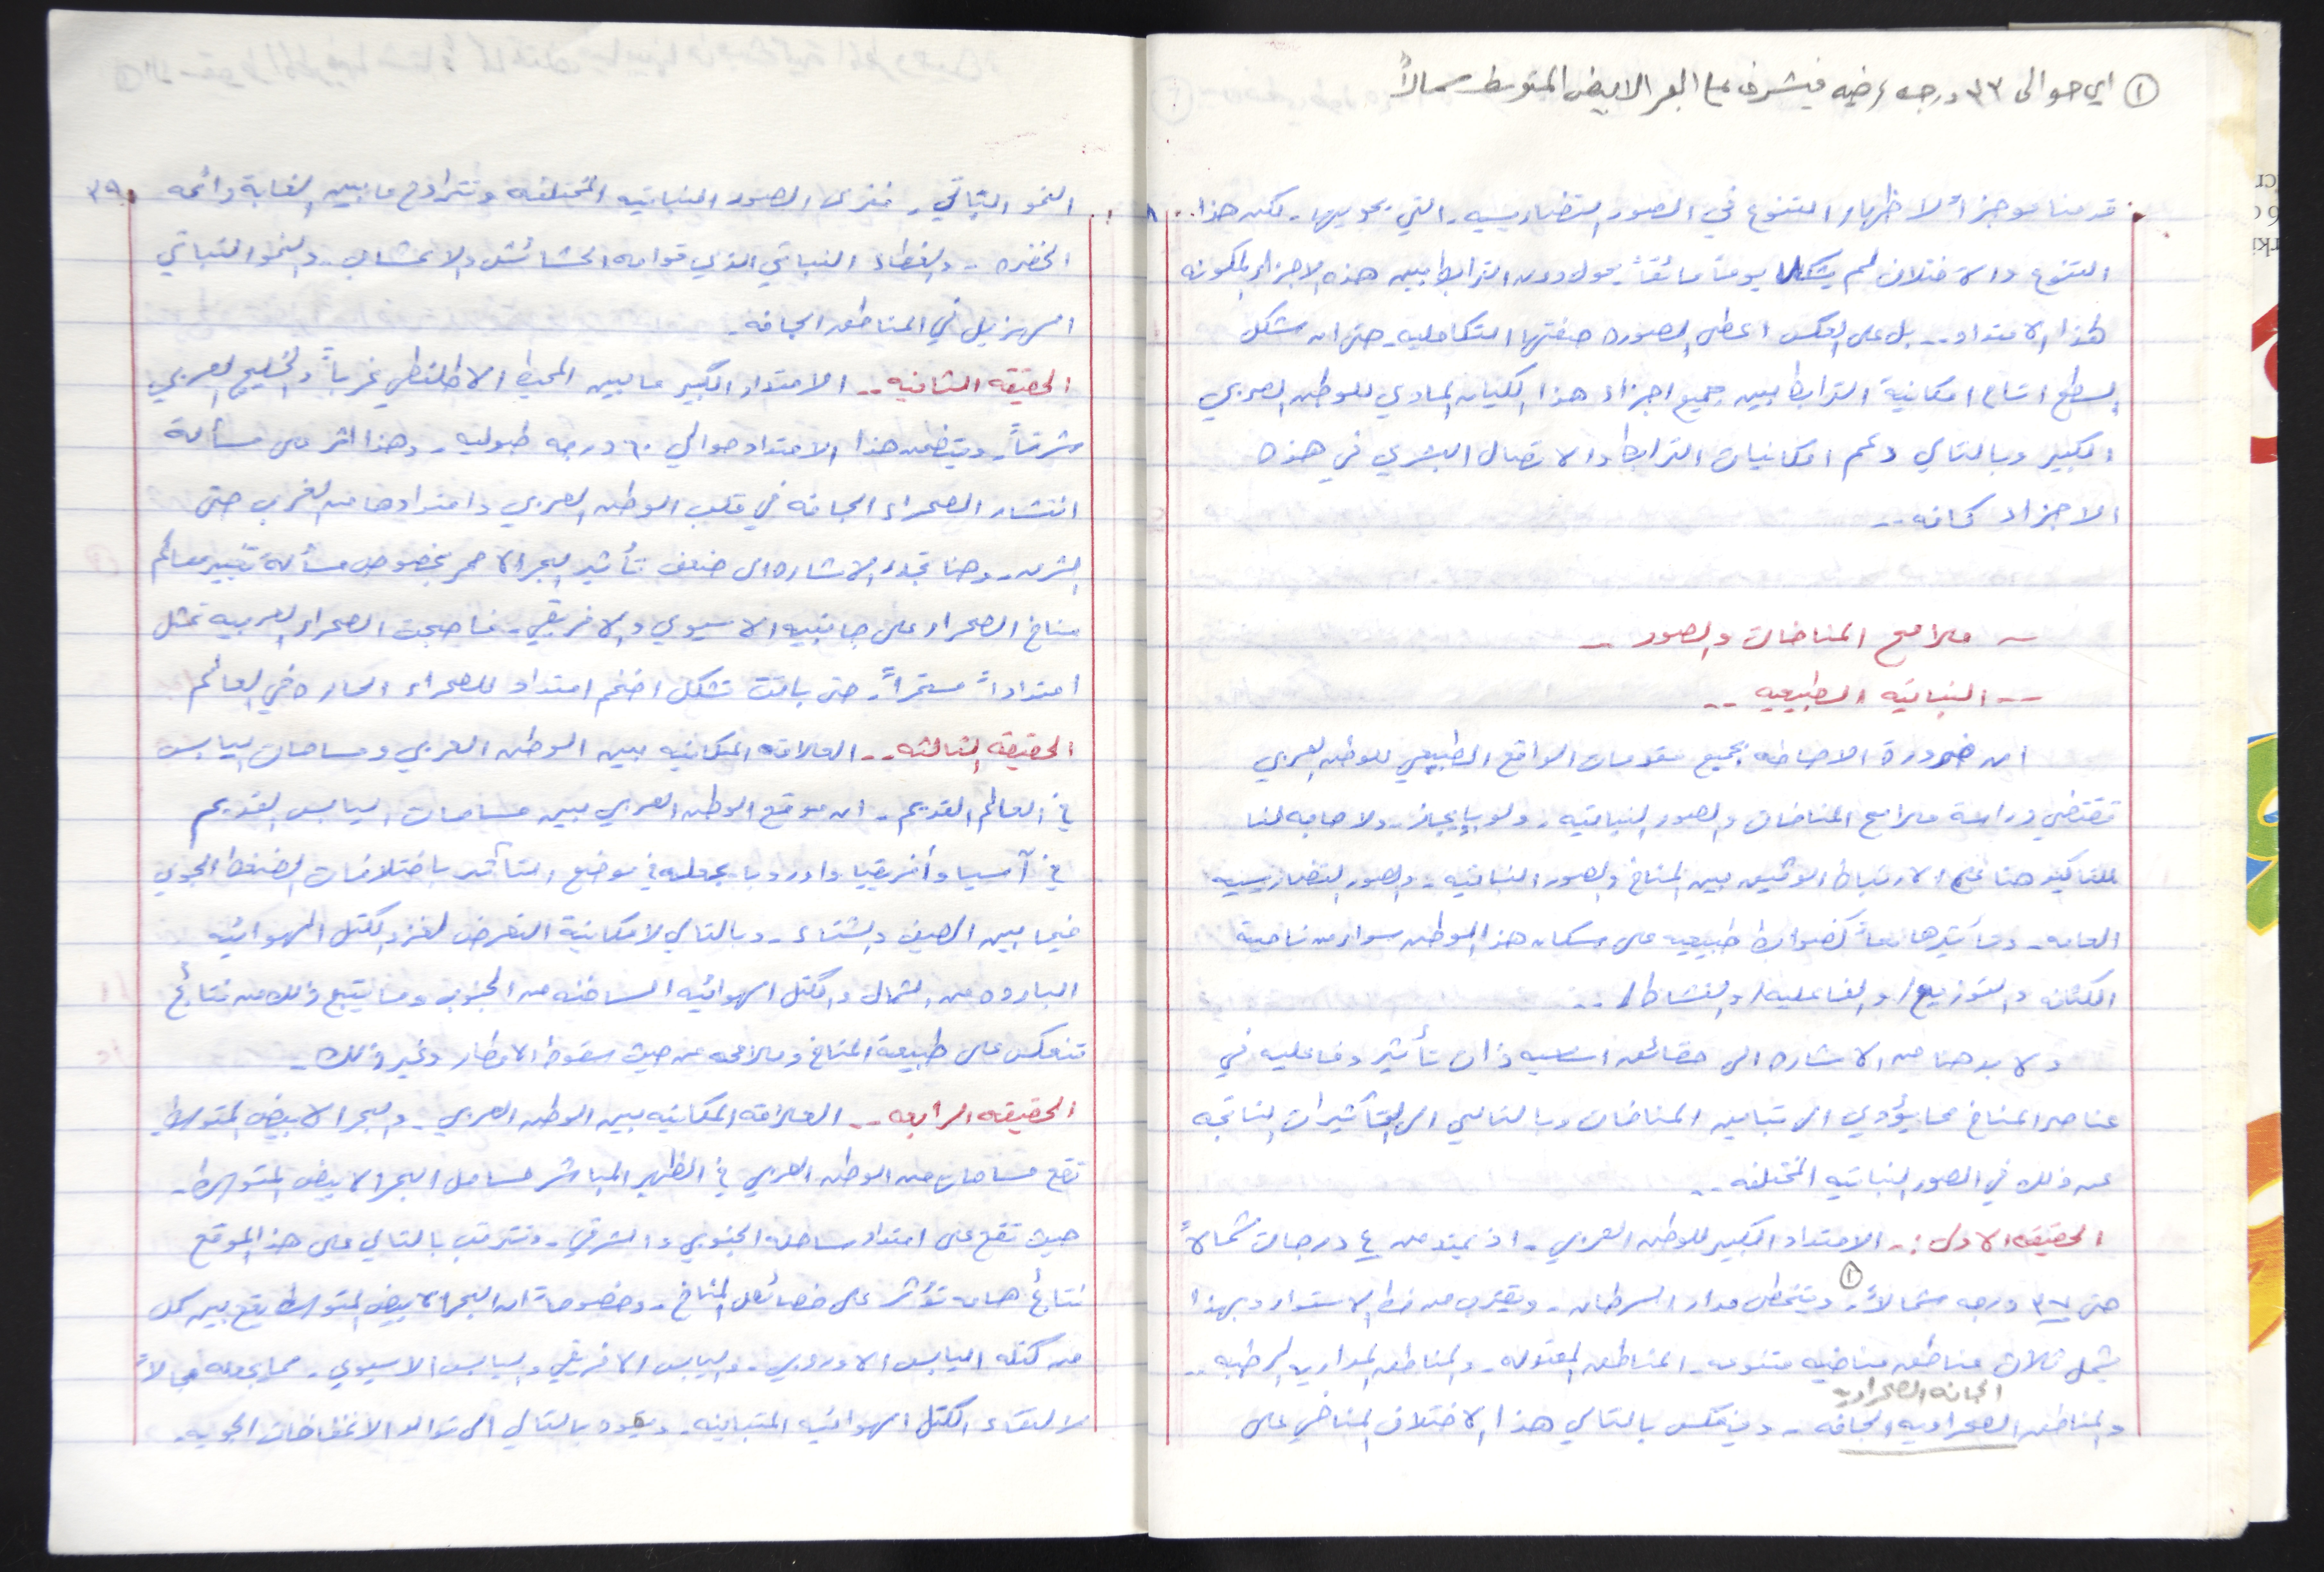 ① اي حوالى ٣٣ درجه عرضيه فيشرف على البحر الابيض المتوسط شمالاً
قدمنا موجزاً لاظهار التنوع في الصور التضاريسيه التي يحويها. لكن هذا
التنوع والاختلاف لم يشكل يوماً عائقاً يحول دون الترابط بين هذه الاجزاء المكونه
لهذا الامتداد.. بل على العكس اعطى الصوره صفتها التكامليه حتى ان شكل
السطح اتاح امكانية الترابط بين جميع اجزاء هذا الكيان المادي للوطن العربي
الكبير وبالتالي دعم امكانيات الترابط والاتصال البشري في هذه
الاجزاء كافه ..
– ملامح المناخات والصور –
-- النباتيه الطبيعيه --
ان ضرورة الاحاطه بجميع مقومات الواقع الطبيعي للوطن العربي
تقتضي دراسة ملامح المناخات والصور النباتيه . ولو بإيجاز . ولا حاجه لنا
للتاكيد هنا على الارتباط الوثيق بين المناخ والصور النباتيه . والصور التضاريسيه
العامه . وتأثيرها معاً كضوابط طبيعيه على سكان هذا الوطن سواء من ناحية
الكثافه والتوزيع/ والفاعليه/ والنشاط/ ..
ولا بد هنا من الاشاره الى حقائق اساسيه ذات تأثير وفاعليه في
عناصر المناخ مما يؤدي الى تباين المناخات وبالتالي الى التأثيرات الناتجه
عن ذلك في الصور النباتيه المختلفه ..
الحقيقه الاولى :- الامتداد الكبير للوطن العربي . اذ يمتد من ٤ درجات شمالاً
حتى ٣٧ درجه شمالاً. ① ويتخطى مدار السرطان . ويقترب من خط الاستواء وبهذا
يشمل ثلاث مناطق مناخيه متنوعه . المناطق المعتدله . والمناطق المداريه الرطبه ..
الجافه الصحراويه
والمناطق الصحراويه الجافه . وينعكس بالتالي هذا الاختلاف المناخي على
٣٩
النمو النباتي . فنرى الصور النباتيه المختلفه وتتراوح ما بين الغابة دائمه
الخضره . والغطاء النباتي الذي قوامه الحشائش والاعشاب . والنمو النباتي
الهزيل في المناطق الجافه .
الحقيقه الثانيه .. الامتداد الكبير ما بين المحيط الاطلنطي غرباً والخليج العربي
شرقاً. ويتضمن هذا الامتداد حوالي ٦٠ درجه طوليه . وهذا اثر على مسألة
انتشار الصحراء الجافه في قلب الوطن العربي وامتدادها من الغرب حتى
الشرق . وهنا تجدر الاشاره الى ضعف تأثير البحر الاحمر بخصوص مسألة تغيير معالم
مناخ الصحراء على جانبيه الاسيوي والافريقي . فاصبحت الصحراء العربيه تمثل
امتداداً مستمراً. حتى باتت تشكل اضخم امتداد للصحراء الحاره في العالم
الحقيقه الثالثه .. العلاقه المكانيه بين الوطن العربي ومساحات اليابس
في العالم القديم . ان موقع الوطن العربي بين مساحات اليابس القديم
في آسيا وأفريقيا واوروبا يجعله في موضع التأثر باختلافات الضغط الجوي
فيما بين الصيف والشتاء . وبالتالي لامكانية التعرض لغزو الكتل الهوائيه
البارده من الشمال والكتل الهوائيه الساخنه من الجنوب وما يتبع ذلك من نتائج
تنعكس على طبيعة المناخ وملامحه من حيث سقوط الامطار وغير ذلك .
الحقيقه الرابعه .. العلاقه المكانيه بين الوطن العربي . والبحر الابيض المتوسط
تقع مساحات من الوطن العربي في الظهير المباشر لساحل البحر الابيض المتوسط .
حيث تقع على امتداد ساحله الجنوبي والشرقي . وتترتب بالتالي على هذا الموقع
نتائج هامه تؤثر على خصائص المناخ . وخصوصاً ان البحر الابيض المتوسط يقع بين كل
من كتلة اليابس الاوروبي . واليابس الافريقي واليابس الاسيوي . مما يجعله مجالاً
لالتقاء الكتل الهوائيه المتباينه . ويقود بالتالي الى توالد الانخفاضات الجويه .